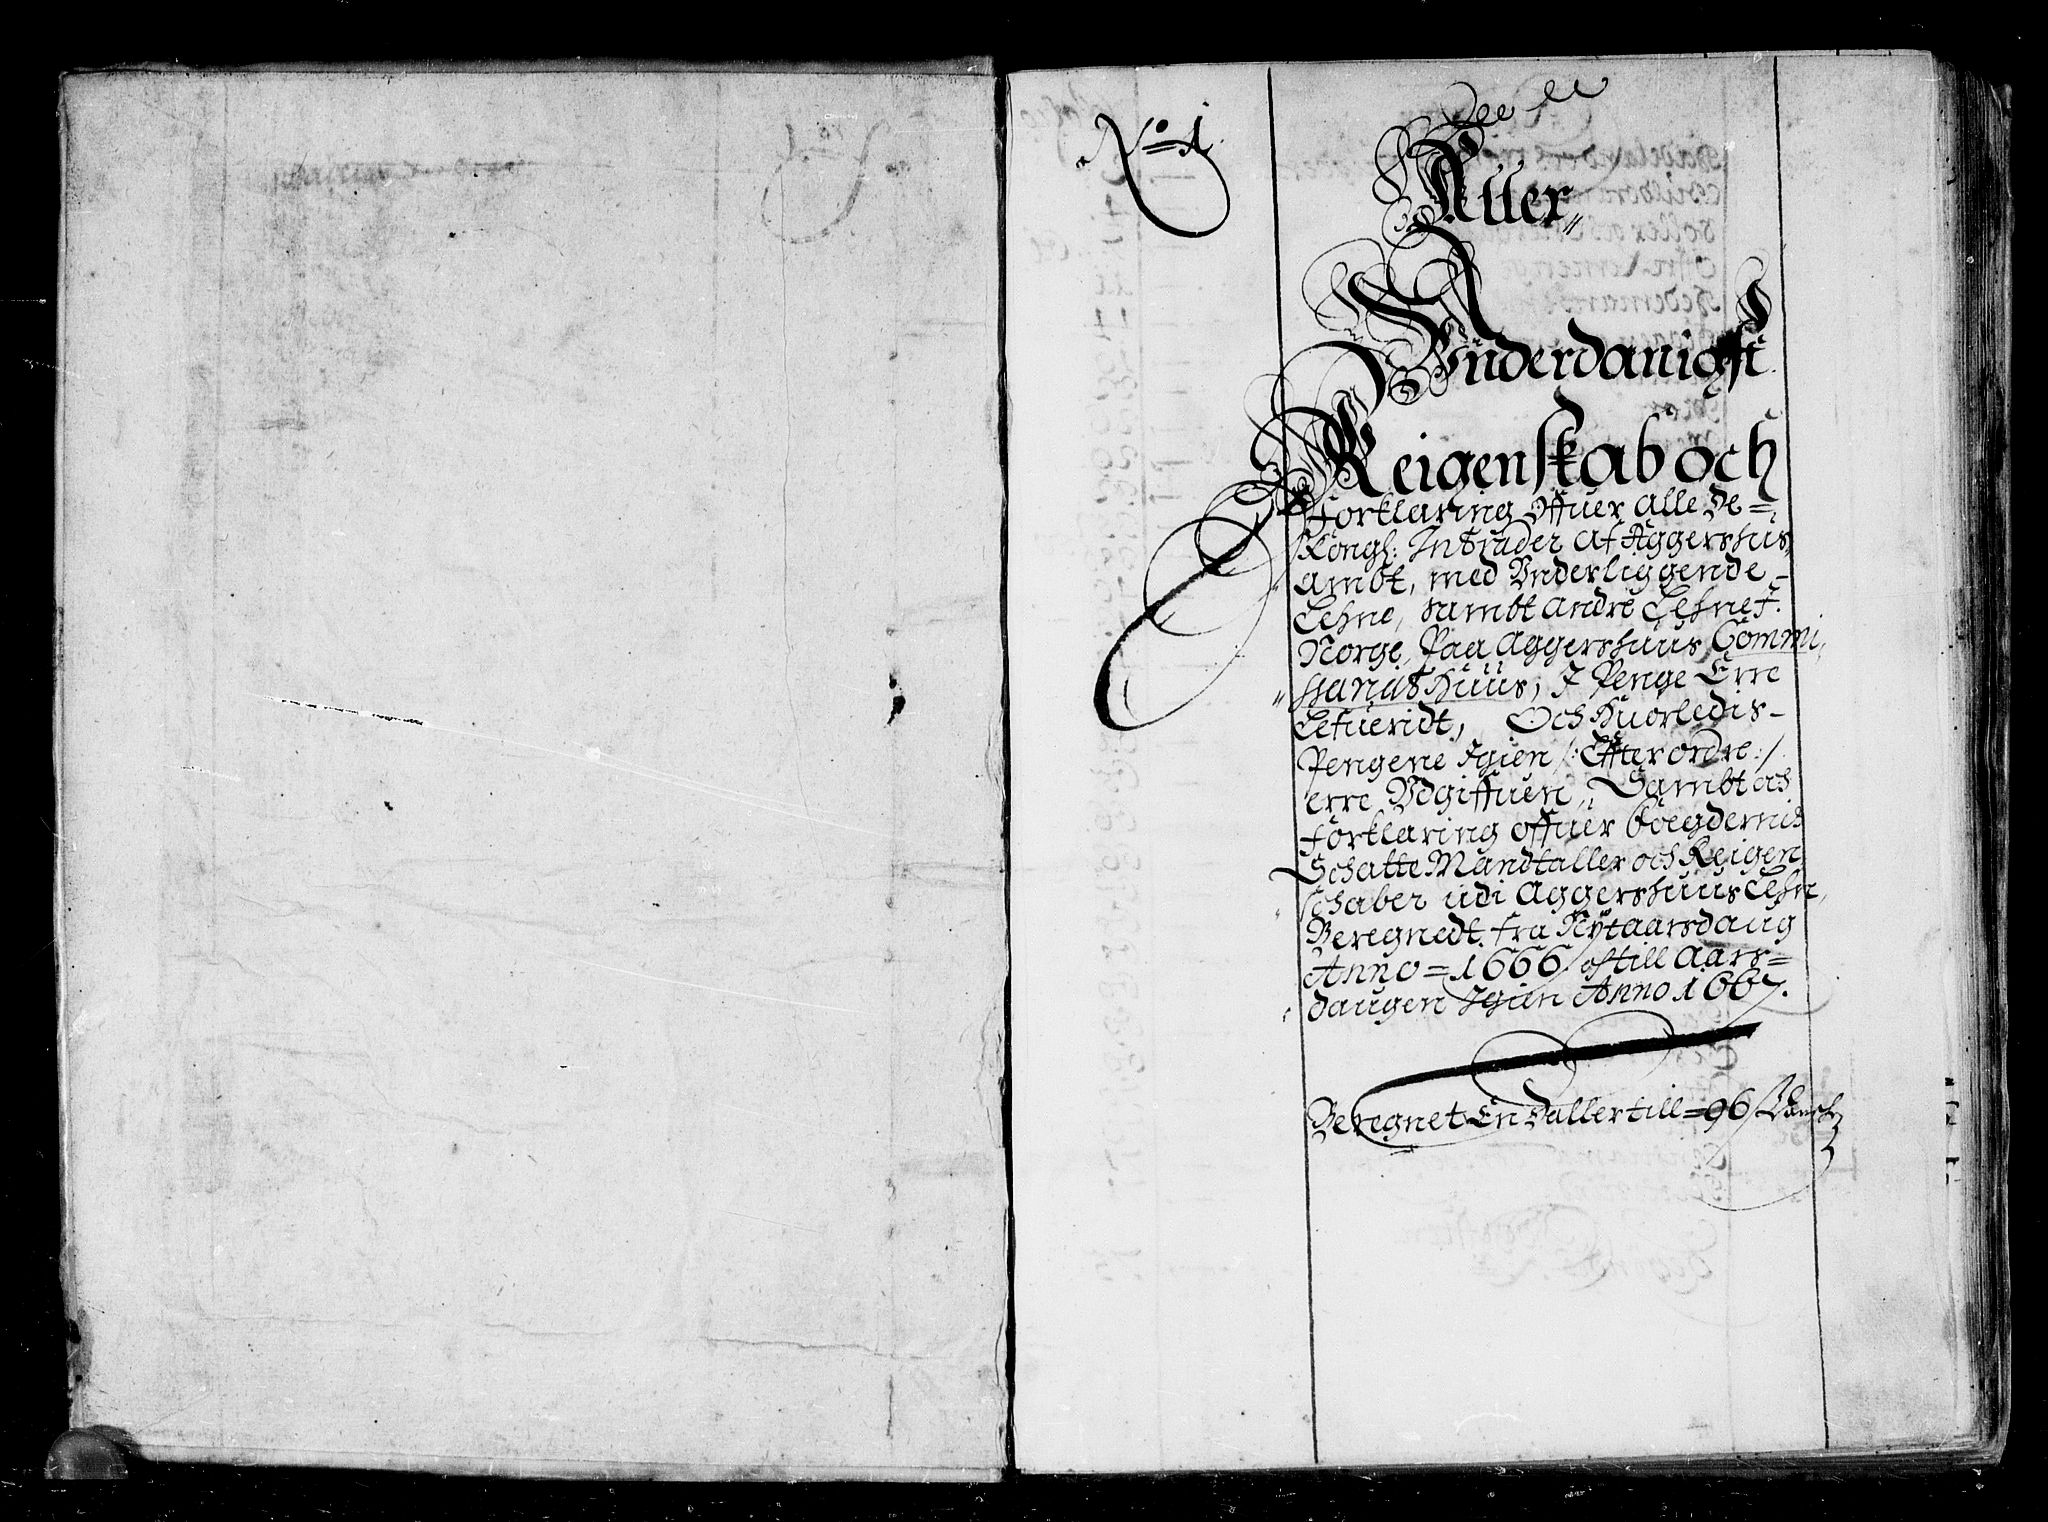 No 1.
Aller
Underdanigst
Reigenskab och
Forklaring offuer alle de
Kongl: Intrader af Aggershus
ambt, med Underliggende
Lehne, sambt andre Lehne J.
Norge, Paa Aggershuus Commi,
ssariats Huus, J Penge Erre
Lefueridt, Och Huorledis
Pengene Igien /: Effter ordre :/
erre Udgiffuen, Sambt och
forklaring offuer foegdernis
Schatte Mandtaller och Reigen
schaber udi Aggershuus Lehn,
Beregnedt fra Nytaarsdaug
Anno = 1666 / och till Aars=
daugen Igien Anno 1667.
Beregnet En daller till = 96 /